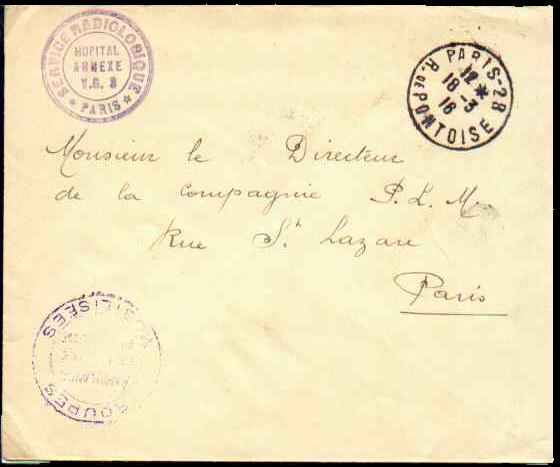 SERVICE RADIOLOGIQUE
HOPITAL
ANNEXE
V.G. 3
* PARIS *
PARIS-28
12 *
18 -3
16
R. DE PONTOISE
Monsieur le Directeur
de la Compagnie P.L.M.
Rue St Lazare
Paris
TROUPES
MOBILISÉES